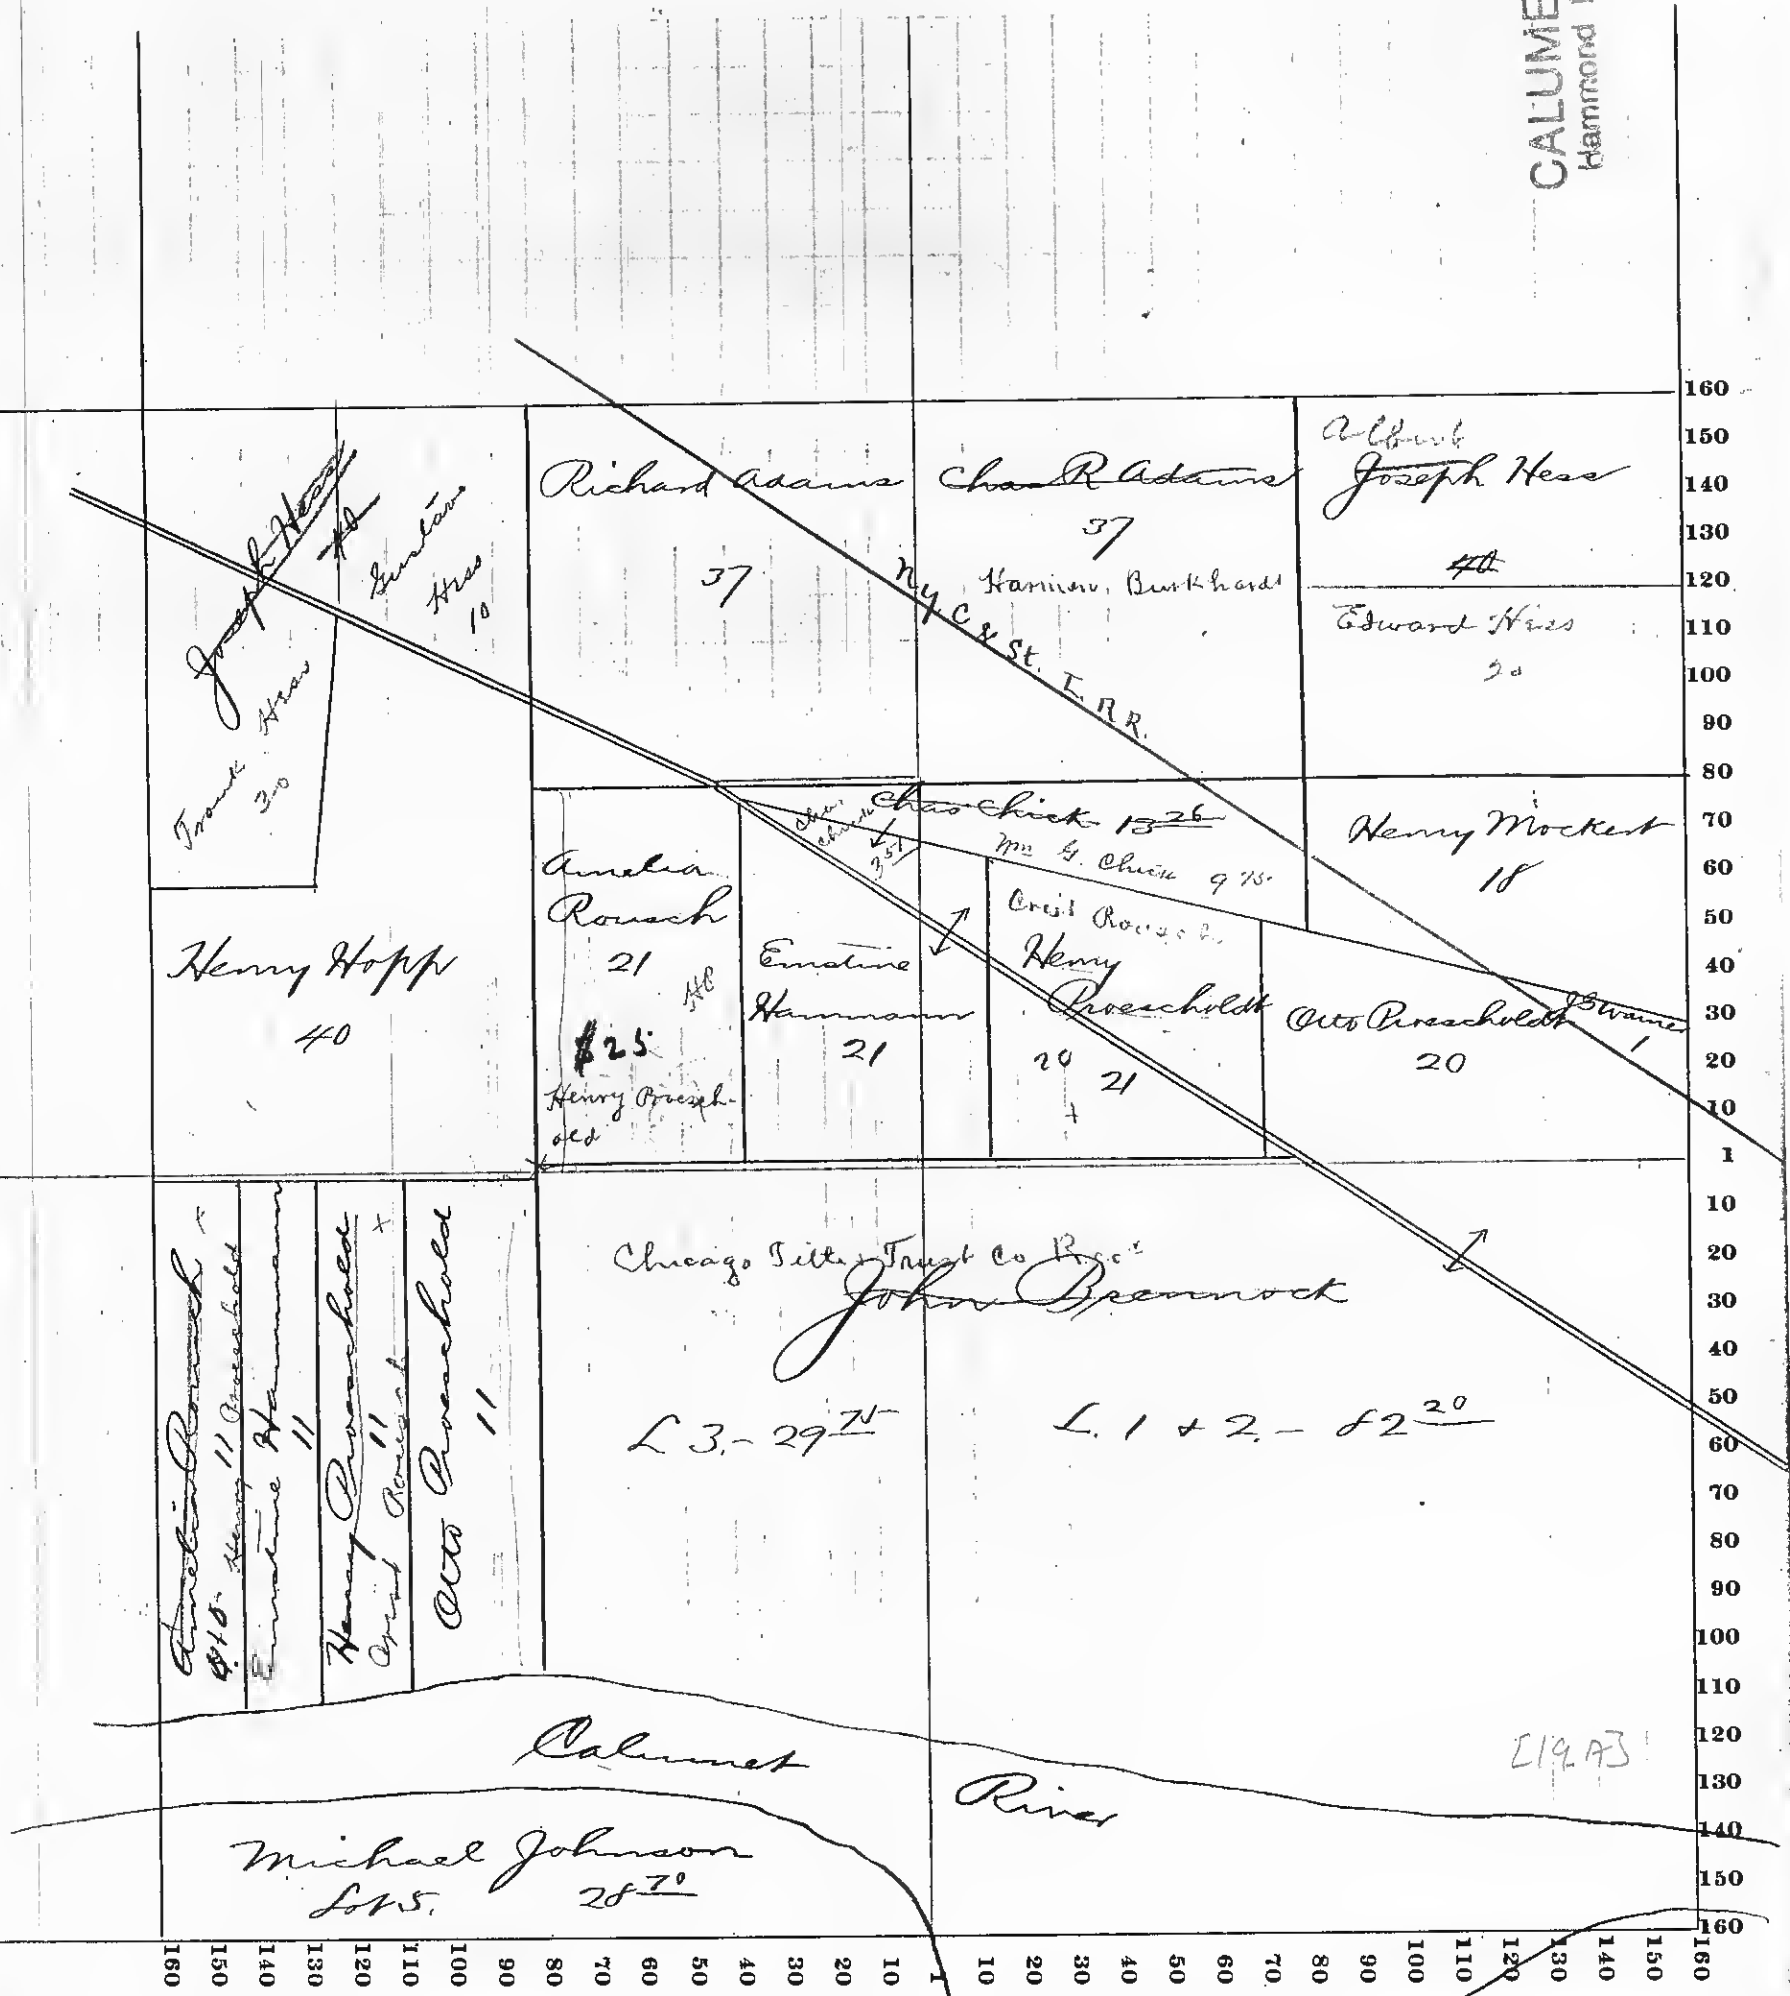 CALUME
Hammond
Joseph Hess
40
Gustav
Hess
10
Frank Hess
30
Richard Adams
37
Chas R Adams
37
Burkhardt
N.Y.C & St. L. R.R.
Joseph Hess
40
Edward Hess
20
Henry Hopp
40
Amelia
Rousch
21
$25
Henry Proesch-
old
Chas
Chick
Chas Chick 13 26
Wm G. Chick 9 75
Henry Mockert
18
Ernstine
Hammann
21
Crist Rousch
Henry
Proescholdt
20
21
Otto Proescholdt
20
J S Warner
1
Amelia Rousch
Henry 11 Proeschold
Ernstine Hammann
11
Henry Proeschold
11
Crist Rousch
Otto Proeschold
11
Chicago Title & Trust Co Rec
John Brennock
L 3.- 29 75
L. 1 & 2.- 82 20
Calumet
River
Michael Johnson
Lot 5. 28 70
[19A]
160
150
140
130
120
110
100
90
80
70
60
50
40
30
20
10
1
10
20
30
40
50
60
70
80
90
100
110
120
130
140
150
160
160 150 140 130 120 110 100 90 80 70 60 50 40 30 20 10 1 10 20 30 40 50 60 70 80 90 100 110 120 130 140 150 160